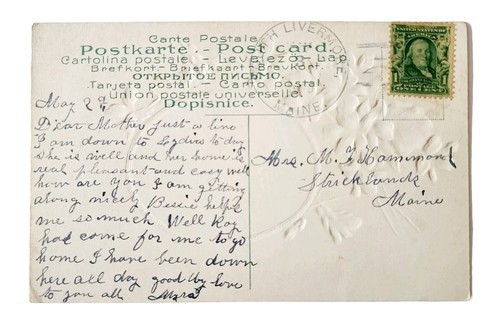 Carte Postale
Postkarte.- Post card.
Cartolina postale - Levelező-Lap.
Briefkort- Briefkaart- Brevkort.
ОТКРЫТОЕ ПИСЬМО.
Tarjeta postal. - Carto postal.
Union postale universelle.
Dopisnice.
H LIVERMORE
MAINE.
UNITED STATES OF AMERICA
1 1
ONE CENT
May 2d
Dear Mother Just a line
I am down to Lydias to day
she is well and her home is
real pleasant and easy well
how are you I am getting
along nicely Bessie helps
me so much Well Ray
has come for me to go
home I have been down
here all day good by love
to you all Myra
Mrs. M. J. Hammond
Stricklands
Maine